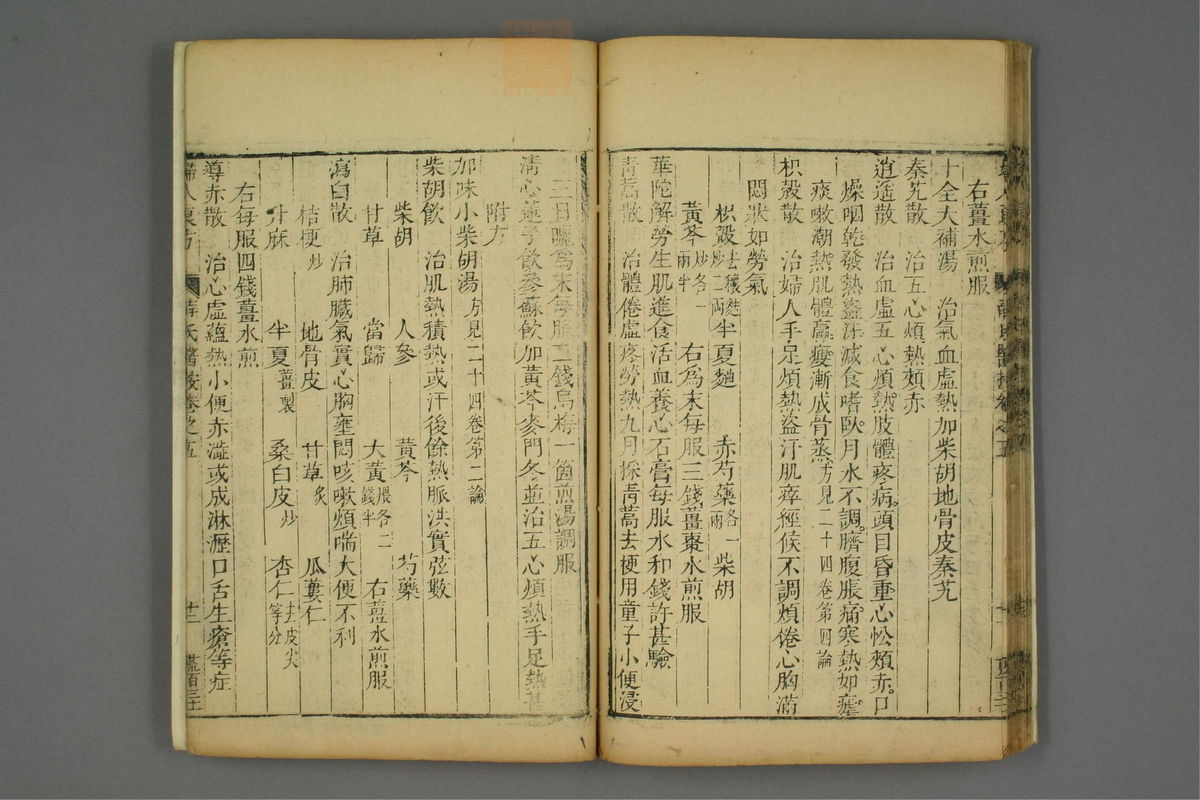 右薑水煎服
十全大補湯 治氣血虛熱加柴胡地骨皮秦艽
秦艽散 治五心煩熱頰赤
逍遙散 治血虛五心煩熱肢體疼病頭目昏重心忪頰赤口
燥咽乾發熱盜汗減食嗜臥月水不調臍腹脹痛寒熱如瘧
痰嗽潮熱肌體羸瘦漸成骨蒸方見二十四卷第四論
枳殼散 治婦人手足煩熱盜汗肌瘁經候不調煩倦心胸滿
悶狀如勞氣
枳殼去穰麩炒二兩 半夏麯 赤芍藥各一兩 柴胡
黃芩炒各一兩半 右為末每服三錢薑棗水煎服
華陀解勞生肌進食活血養心石膏每服水和錢許甚驗
青蒿散 治體倦虛疼勞熱九月採青蒿去梗用童子小便浸
三日曬為末每服二錢烏梅一箇煎湯調服
清心蓮子飲參蘇飲加黃芩麥門冬並治五心煩熱手足熱甚
附方
加味小柴胡湯方見二十四卷第二論
柴胡飲 治肌熱積熱或汗後餘熱脈洪實弦數
柴胡 人參 黃芩 芍藥
甘草 當歸 大黃煨各二錢半 右薑水煎服
瀉白散 治肺臟氣實心胸壅悶咳嗽煩喘大便不利
桔梗炒 地骨皮 甘草炙 瓜蔞仁
升麻 半夏薑製 桑白皮炒 杏仁去皮尖等分
右每服四錢薑水煎
導赤散 治心虛蘊熱小便赤澁或成淋瀝口舌生瘡等症
婦人良方 薛氏醫按卷之五 十二